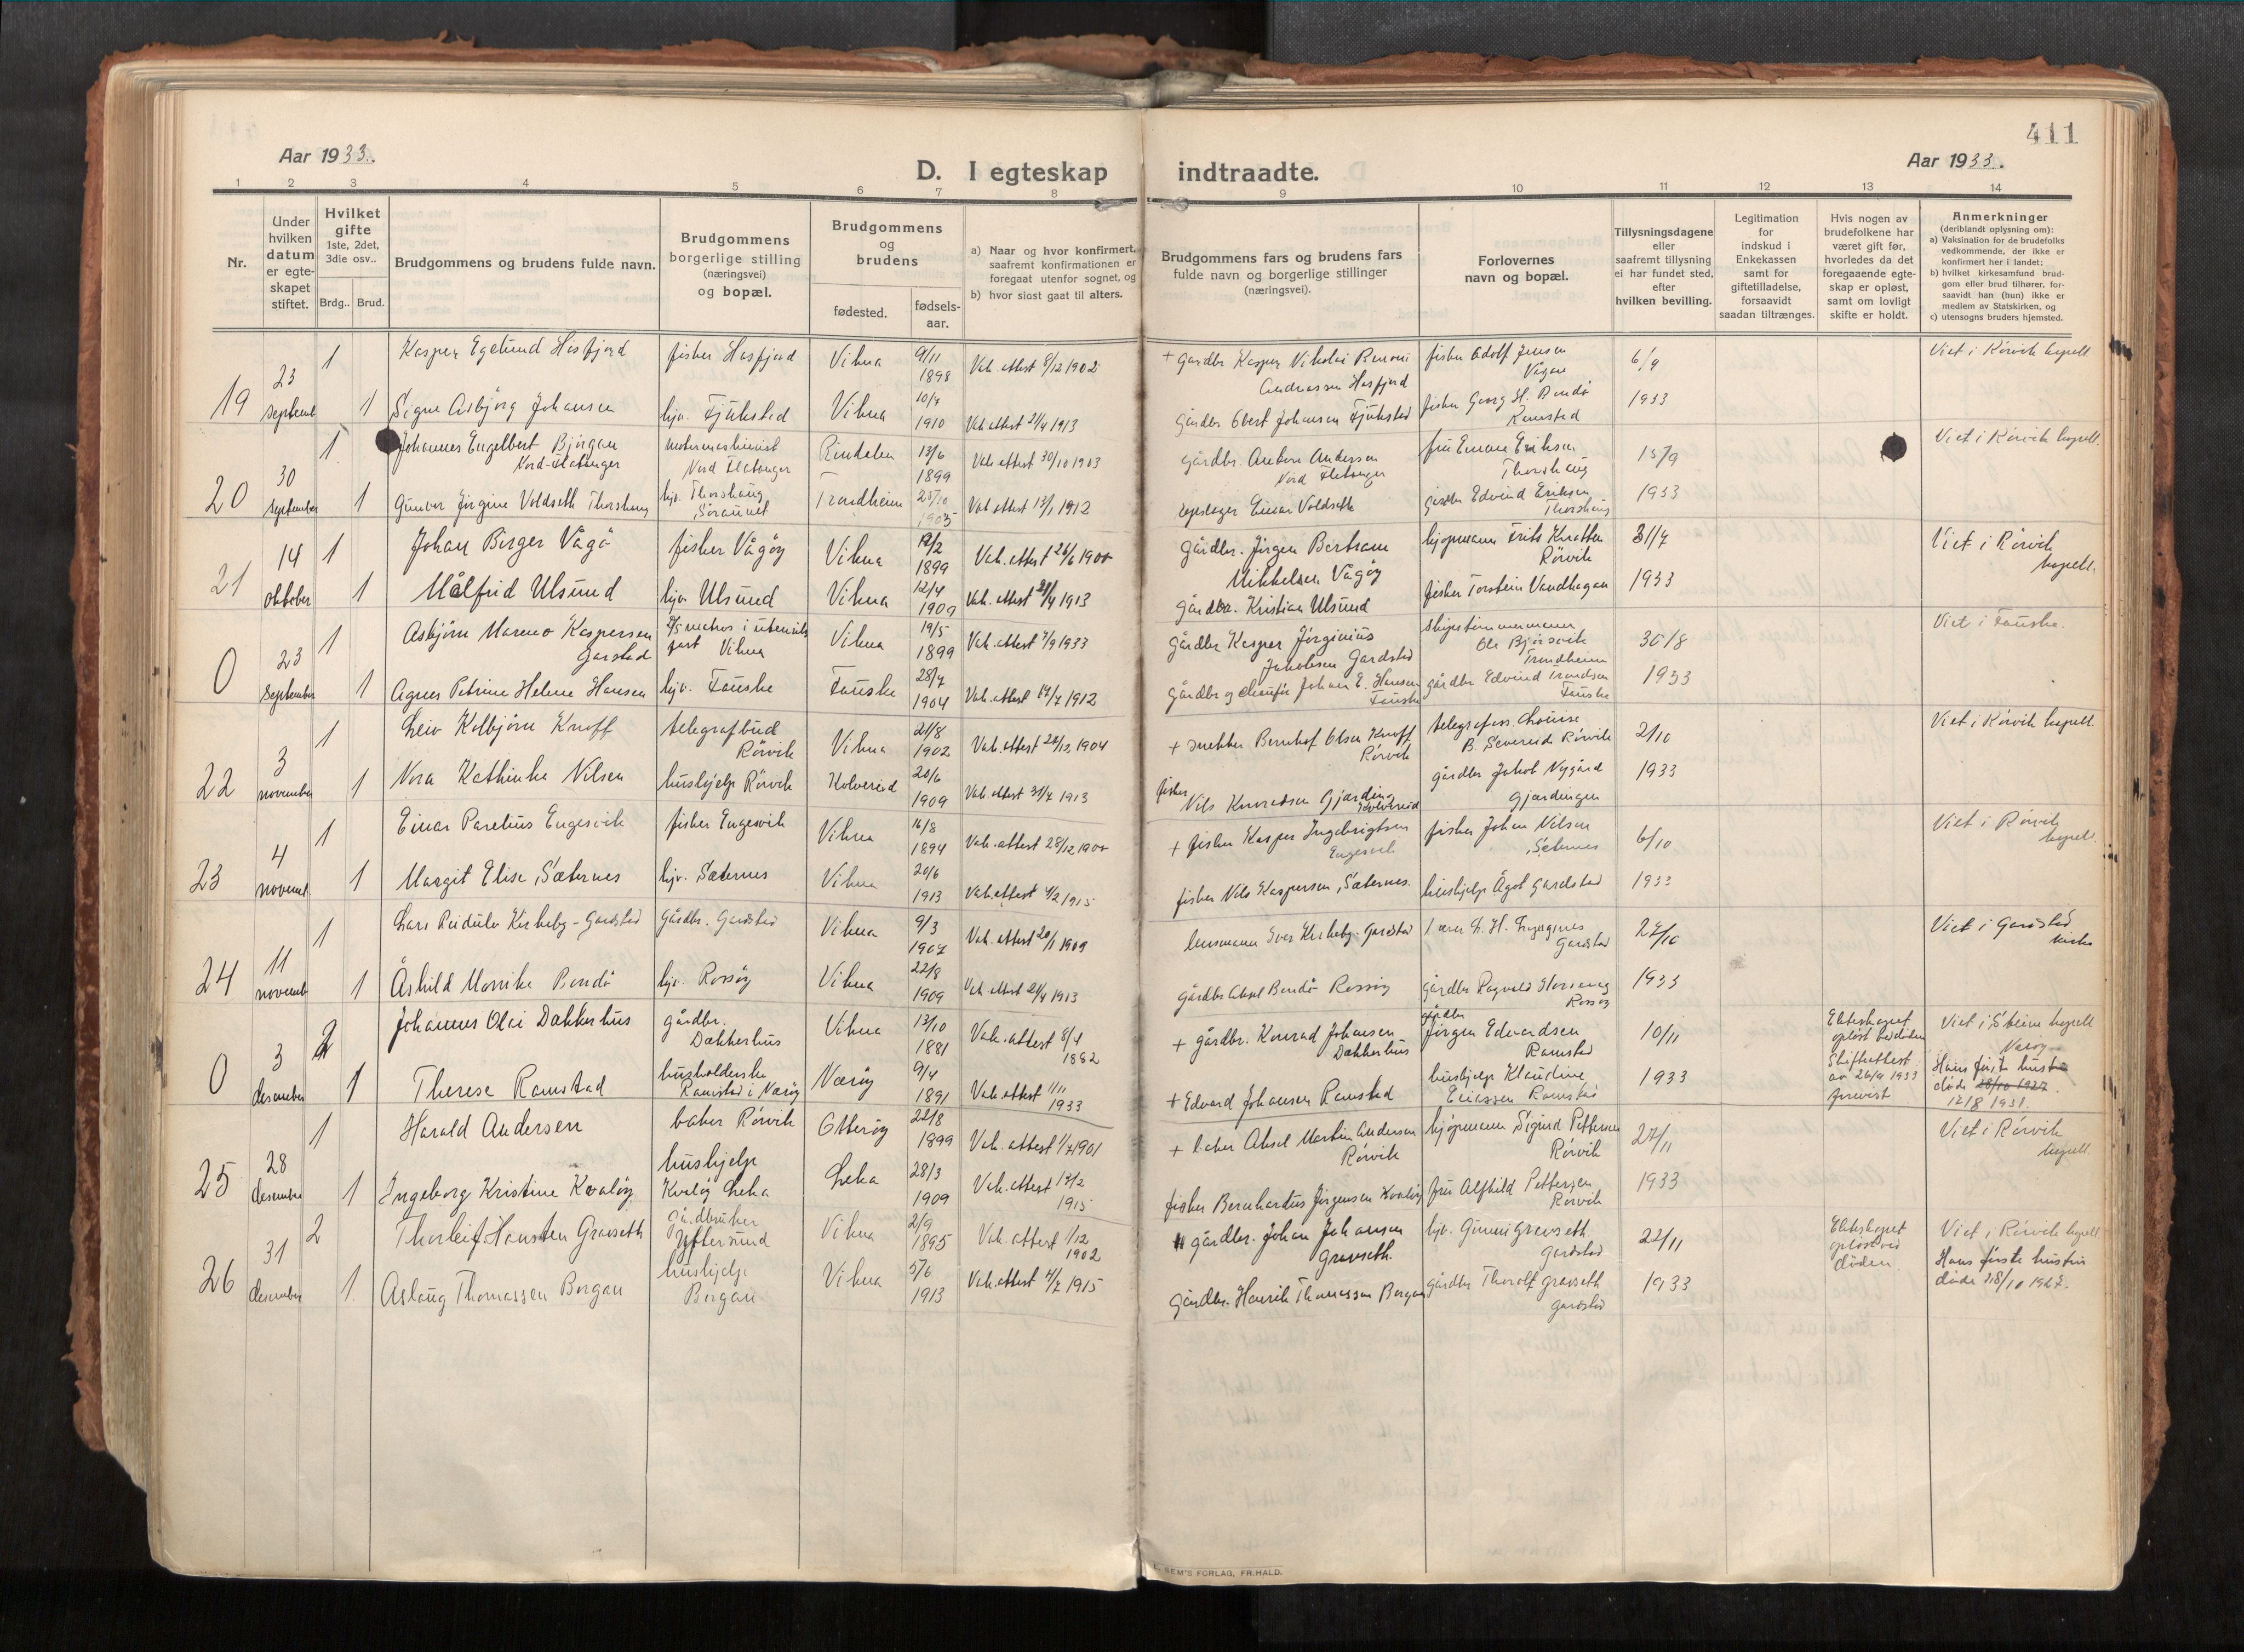 411
Aar 1933.
Aar 1933.
D. I egteskap indtraadte.
1 2 3 4 5 6 7 8 9 10 11 12 13 14
Nr.
Under hvilken datum er egte-skapet stiftet.
Hvilket gifte
1ste, 2det, 3die osv..
Brdg.. Brud.
Brudgommens og brudens fulde navn.
Brudgommens borgerlige stilling (næringsvei) og bopæl.
Brudgommens og brudens
fødested.
fødsels-aar.
a) Naar og hvor konfirmert, saafremt konfirmationen er foregaat utenfor sognet, og
b) hvor sidst gaat til alters.
Brudgommens fars og brudens fars fulde navn og borgerlige stillinger (næringsvei).
Forlovernes navn og bopæl.
Tillysningsdagene eller saafremt tillysning ei har fundet sted, efter hvilken bevilling.
Legitimation for indskud i Enkekassen samt for giftetilladelse, forsaavidt saadan tiltrænges.
Hvis nogen av brudefolkene har været gift før, hvorledes da det foregaaende egte-skap er opløst, samt om lovligt skifte er holdt.
Anmerkninger
(deriblandt oplysning om):
a) Vaksination for de brudefolks vedkommende, der ikke er konfirmert her i landet;
b) hvilket kirkesamfund brud-gom eller brud tilhører, for-saavidt han (hun) ikke er medlem av Statskirken, og
c) utensogns bruders hjemsted.
19
23 septemb
1 Kasper Egelund Hosfjord
fisher Hosfjord
Vikna 9/11 1898
Vak. attest 8/12 1902
+ gårdbr Kasper Nikolai Benoni Andreassen Hosfjord
fisker Adolf Jensen Vågan
6/9
Viet i Rørvik kapell
1 Signe Asbjørg Johansen
hjv. Fjukstad
Vikna 10/7 1910
Vak attest 21/4 1913
Gårdbr Obert Johansen Fjukstad
fisker Georg H. Bondø Ramstad
1933
20
30 September
1 Johannes Engelbert Bjørgan Nord-Flatanger
motormaskinist Nord Flatanger
Rindalen 13/6 1899
Vak attest 30/10 1903
gårdbr. Andersen Nord Flatanger
fru Emma Eriksen Thorshaug
15/9
Viet i Rørvik kapell.
1 Gunvor Jørgine Voldseth Thorshaug
hjv. Thorshaug
Trondheim 25/10 1905
Vak attest 13/1 1912
repslager Einar Voldseth
gårdbr Edvind Eriksen Thorshaug
1933
21
14 oktober
1 Johan Birger Vågø
fisker Vågøy
Vikna 12/2 1899
Vak. attest 26/6 1900
Gårdbr. Jørgen Bertram Mikkelsen Vågøy
kjøpmann Frits Knatten Rørvik
31/7
Viet i Rørvik kapell.
1 Målfrid Ulsund
hjv. Ulsund
Vikna 12/4 1909
Vak. attest 21/4 1913
Gårdbr. Kristian Ulsund
fisker Torstein Vandhagan
1933
0
23 September
1 Asbjørn Mareno Kaspersen Garstad
matros i utenriks fart Vikna
Vikna 19/5 1899
Vak attest 7/9 1933
Gårdbr Kasper Jørginius Jakobsen Gardstad
skipstømmermann Ole Bjørsvik Trondheim
30/8
Viet i Fauske.
1 Agnes Petrine Helene Hansen
hjv. Fauske
Fauske 28/7 1904
Vak. attest 19/7 1912
gårdbr og chauffør Johan E. Hansen Fauske
gårdbr Edvind Trondsen Fauske
1933
22
3 november
1 Leiv Kolbjørn Knoff
telegrafbud Rørvik
Vikna 21/8 1902
Vak. attest 28/12 1904
+ snekker Bernhof Olsen Knoff Rørvik
telegrafass. Louise B. Sevareid Rørvik
2/10
Viet i Rørvik kapell.
1 Nora Kathinka Nilsen
hushjelp Rørvik
Kolvereid 20/6 1909
Vak attest 31/7 1913
fisker Nils Konradsen Gjerdinge Kolvereid
gårdbr Jakob Nygård Gjerdingen
1933
23
4 novemb.
1 Einar Parelius Engesvik
fisker Engesvik
Vikna 16/8 1894
Vak. attest 28/12 1900
+ fisker Kasper Ingebrigtsen Engesvik
fisker Johan Nilsen Sæternes
6/10
Viet i Rørvik kapell.
1 Margit Elise Sæternes
hjv. Sæternes
Vikna 20/6 1913
Vak. attest 4/2 1915
fisker Nils Kaspersen Sæternes.
hushjelp Ågot Gardstad
1933
24
11 novemb
1 Lars Reidulv Kirkeby-Gardstad
gårdbr. Gardstad
Vikna 9/3 1907
Vak attest 20/1 1909
lensmann Sver Kirkeby-Gardstad
lærer H. Gardstad
27/10
Viet i Gardstad kirke
1 Åshild Marika Bondø
hjv. Rossøy
Vikna 22/8 1909
Vak attest 21/4 1913
gårdbr Aksel Bondø Rossøy
gårdbr Ragvald Rossøy
1933
0
3 desember
2 Johannes Olai Dakkerhus
gårdbr. Dakkerhus
Vikna 13/10 1881
Vak. attest 8/4 1882
+ gårdbr. Konrad Johansen Dakkerhus
gårdbr Jørgen Edvardsen Ramstad
10/11
Ekteskapet opløst ved døden Skifteattest av 26/9 1933 forevist
Viet i Steine kapell Nærøy
Hans første hustru døde 28/10 1927 12/8 1931.
1 Therese Ramstad
husholderske Ramstad i Nærøy
Nærøy 9/4 1891
Vak attest 1/11 1933
+ Edvard Johansen Ramstad
hushjelp Klaudine Eriassen Ramstad
1933
25
28 desember
1 Harald Andersen
baker Rørvik
Otterøy 22/8 1899
Vak. attest 1/7 1901
+ baker Aksel Martin Andersen Rørvik
kjøpmann Sigurd Pettersen Rørvik
27/11
Viet i Rørvik kapell.
1 Ingeborg Kristine Kvaløy
hushjelp Kvaløy Leka
Leka 28/3 1909
Vak. attest 13/2 1915
fisker Bernhardus Jørgensen Kvaløy
fru Alfhild Pettersen Rørvik
1933
26
31 desember
2 Thorleif Hansten Gravseth
gårdbruker Yttersund
Vikna 2/9 1895
Vak. attest 1/12 1902
gårdbr. Johan Johansen Gravseth.
hjv. Gunni Gravseth Gardstad
22/11
Ekteskapet opløst ved døden.
Viet i Rørvik kapell
Hans første hustru døde 28/10 1927.
1. Aslaug Thomassen Borgan
hushjelp Borgan
Vikna 5/6 1913
Vak. attest 4/7 1915
Gårdbr. Henrik Thomassen Borgan
gårdbr Thoralf Gravseth Gardstad
1933
SEM'S FORLAG, FR.HALD.